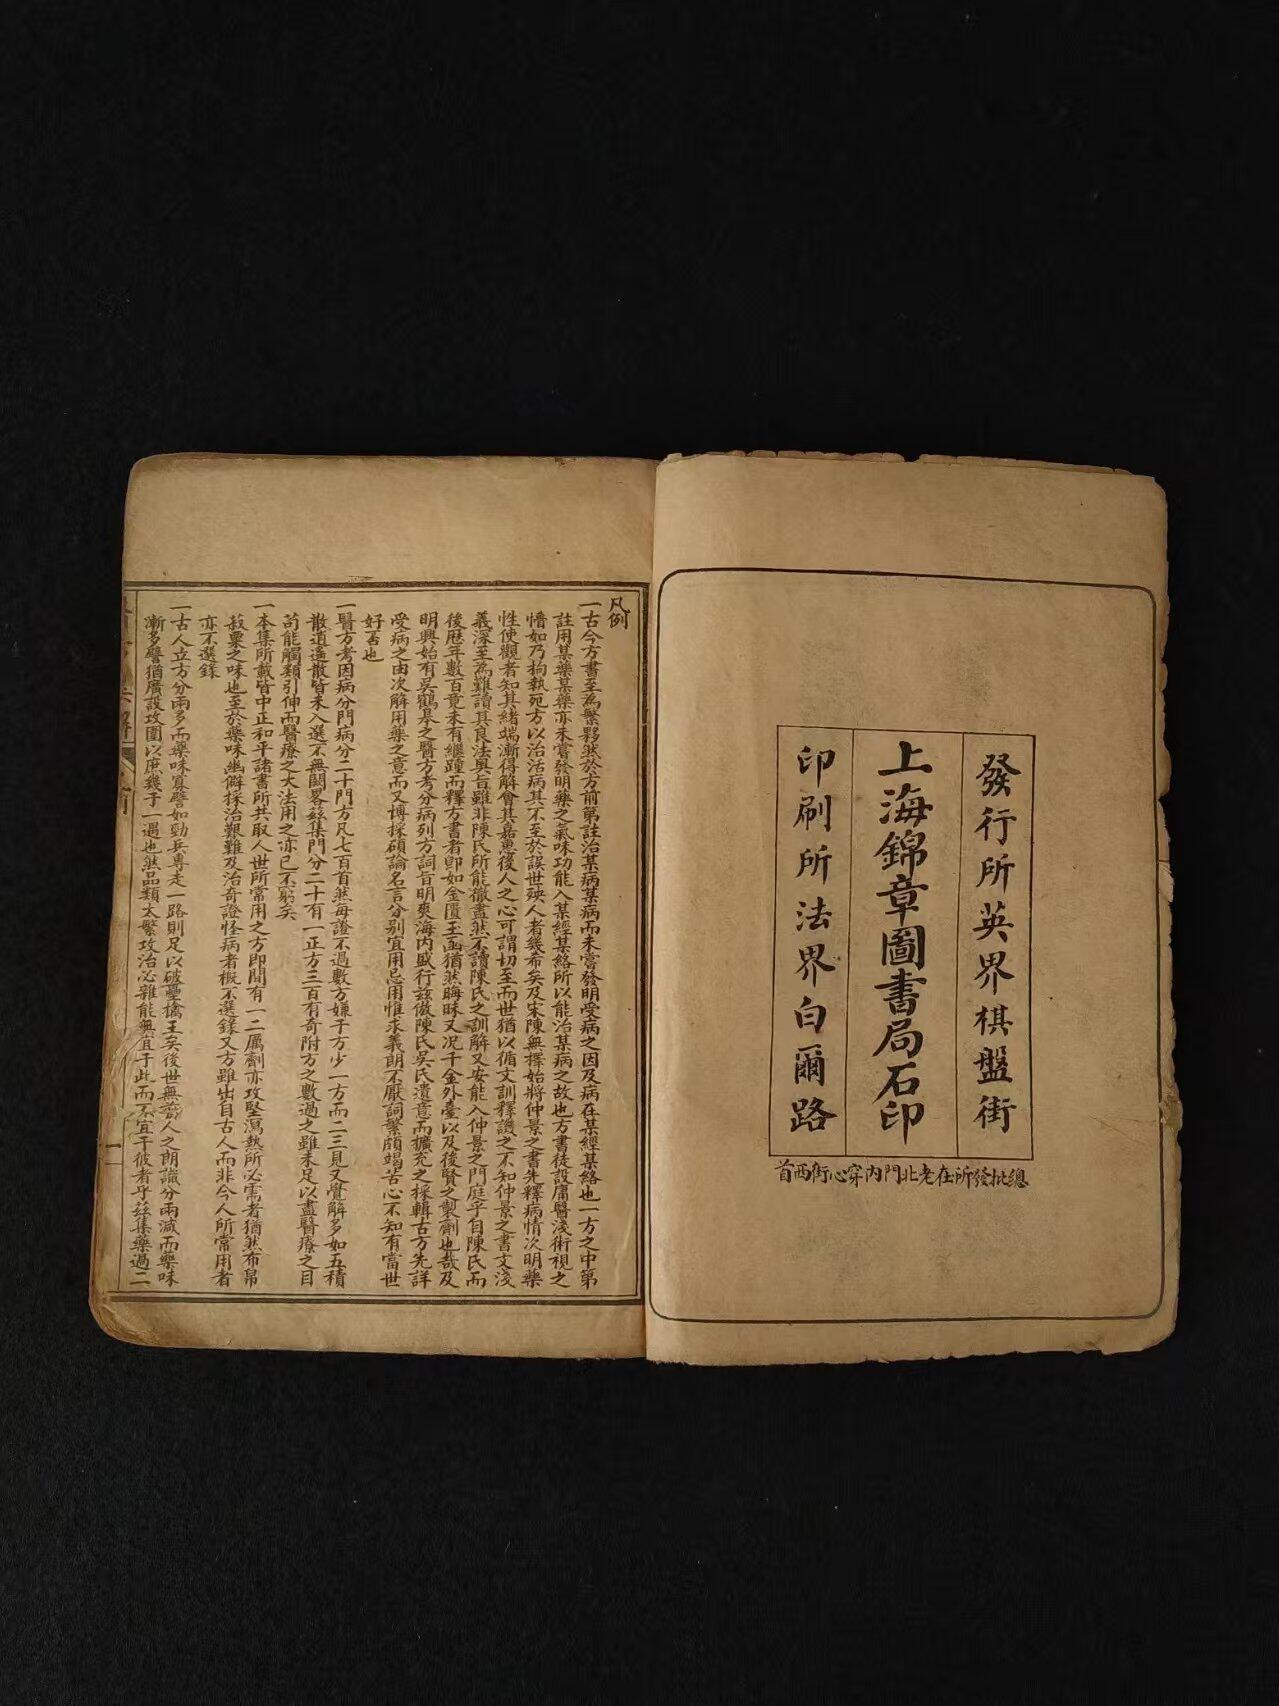 發行所英界棋盤街
上海錦章圖書局石印
印刷所法界白爾路
總批發所在老北門內穿心街西首
凡例
一古今方書至為繁夥然於方前第註治某病某病而未嘗發明受病之因及病在某經某絡也一方之中第
註用某藥某藥亦未嘗發明藥之氣味功能入某經某絡所以能治某病之故也方書徒設庸醫淺術視之
懵如乃拘執死方以治活病其不至於誤世殃人者幾希矣及宋陳無擇始將仲景之書先釋病情次明藥
性使觀者知其緒端漸得解會其嘉惠後人之心可謂切至而世猶以循文訓釋譏之不知仲景之書文淺
義深至為難讀其良法奧旨雖非陳氏所能徹盡然不讀陳氏之訓解又安能入仲景之門庭乎自陳氏而
後歷年數百竟未有繼踵而釋方書者即如金匱玉函猶然晦昧又況千金外臺以及後賢之製劑也哉及
明興始有吳鶴皋之醫方考分病列方詞旨明爽海內盛行茲倣陳氏吳氏遺意而擴充之採輯古方先詳
受病之由次解用藥之意而又博採碩論名言分別宜用忌用惟求義朗不厭詞繁頗竭苦心不知有當世
好否也
一醫方考因病分門病分二十門方凡七百首然每證不過數方嫌于方少一方而二三見又覺解多如五積
散逍遙散皆未入選不無闕畧茲集門分二十有一正方三百有奇附方之數過之雖未足以盡醫療之目
苟能觸類引伸而醫療之大法用之亦已不窮矣
一本集所載皆中正和平諸書所共取人世所常用之方即間有一二厲劑亦攻堅瀉熱所必需者猶然布帛
菽粟之味也至於藥味幽僻採治艱難及治奇證怪病者概不選錄又方雖出自古人而非今人所常用者
亦不選錄
一古人立方分兩多而藥味寡譬如勁兵專走一路則足以破壘擒王矣後世無古人之朗識分兩減而藥味
漸多譬猶廣設攻圍以庶幾于一遇也然品類太繁攻治必雜能無宜于此而不宜于彼者乎茲集藥過二